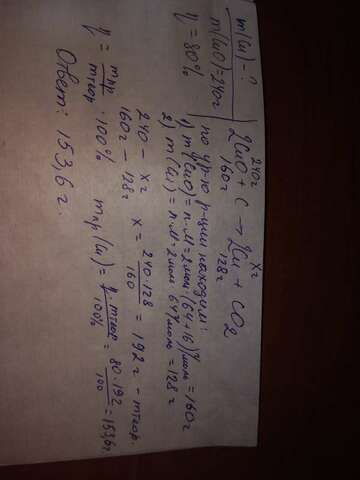 m(Cu) - ?
m(CuO) = 240г
η = 80%
240г xг
2CuO + C → 2Cu + CO2
160г 128г
по ур-ю р-ции находим:
1) m(CuO) = n·M = 2моль·(64+16)г/моль = 160г
2) m(Cu) = n·M = 2моль·64г/моль = 128г
240 - xг
160г - 128г
x = 240·128 / 160 = 192г - mтеор.
η = mпр / mтеор · 100%
mпр(Cu) = η·mтеор / 100% = 80·192 / 100 = 153,6г
Ответ: 153,6 г.